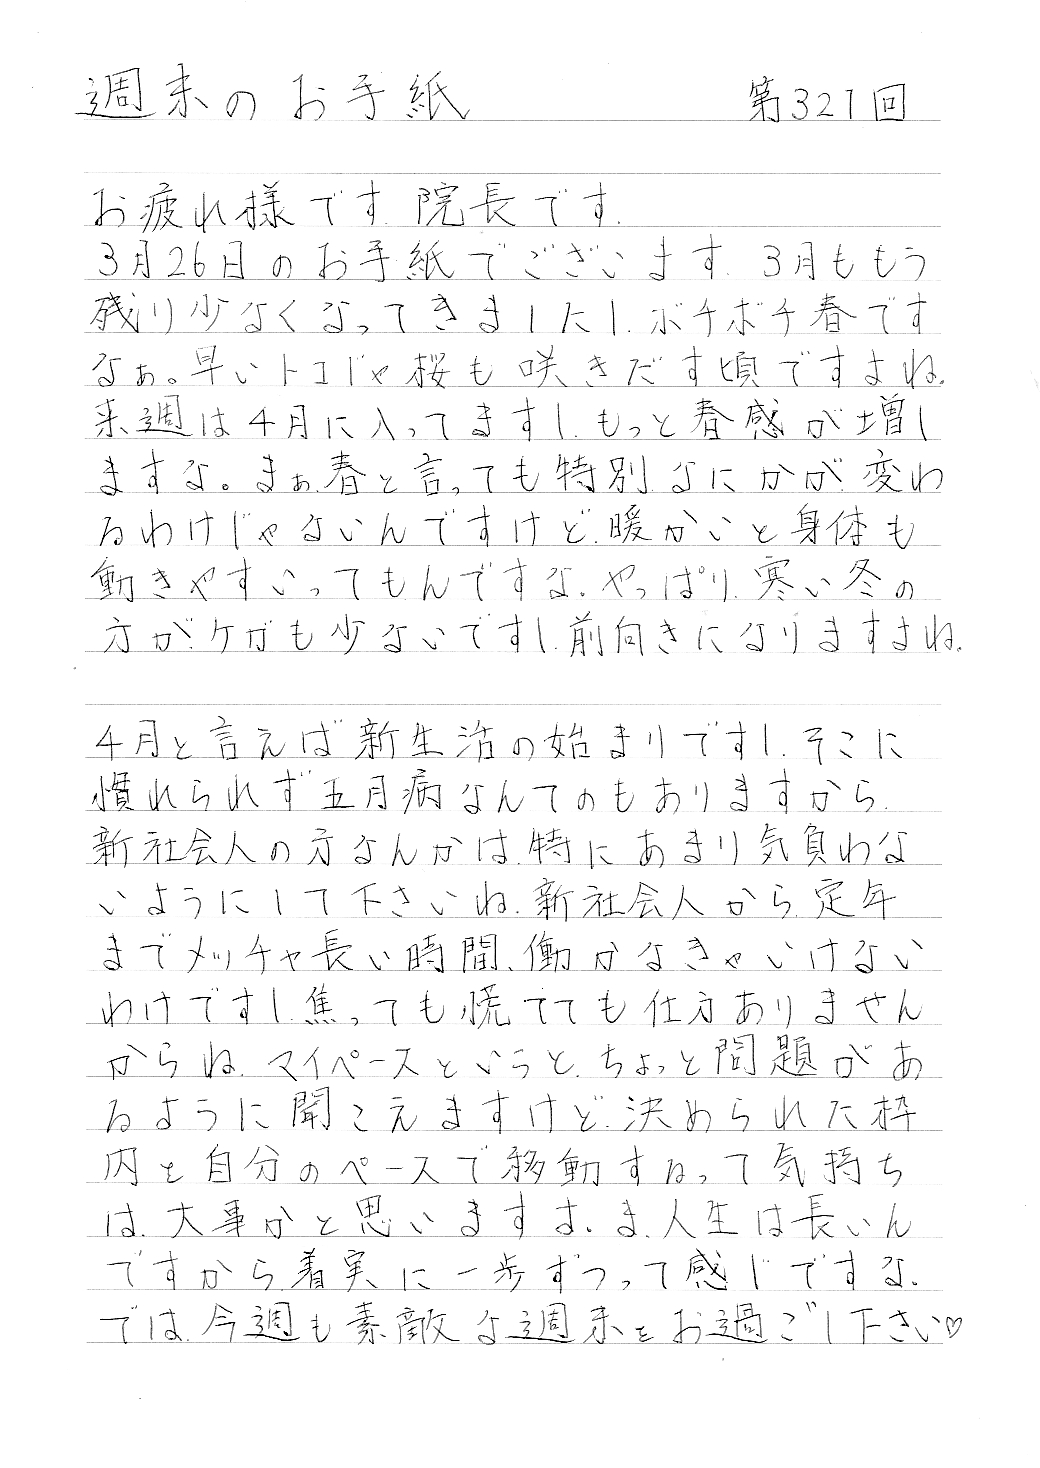 週末のお手紙 第321回
お疲れ様です.院長です.
3月26日のお手紙でございます.3月ももう
残り少なくなってきましたし.ボチボチ春です
なぁ。早いトコじゃ桜も咲きだす頃ですよね.
来週は4月に入ってますし.もっと春感が増し
ますな。まぁ.春と言っても特別.なにかが.変わ
るわけじゃないんですけど.暖かいと身体も
動きやすいってもんですな.やっぱり.寒い冬の
方がケガも少ないですし.前向きになりますよね.
4月と言えば新生活の始まりですし.そこに
慣れられず五月病なんてのもありますから.
新社会人の方なんかは.特にあまり気負わな
いようにして下さいね.新社会人から.定年
までメッチャ長い時間、働かなきゃいけない
わけですし.焦っても慌てても仕方ありません
からね.マイペースというと.ちょっと問題があ
るように聞こえますけど.決められた枠
内を自分のペースで移動するって気持ち
は.大事かと思いますよ.ま.人生は長いん
ですから.着実に一歩ずつって感じですな.
では.今週も素敵な週末をお過ごし下さい♡